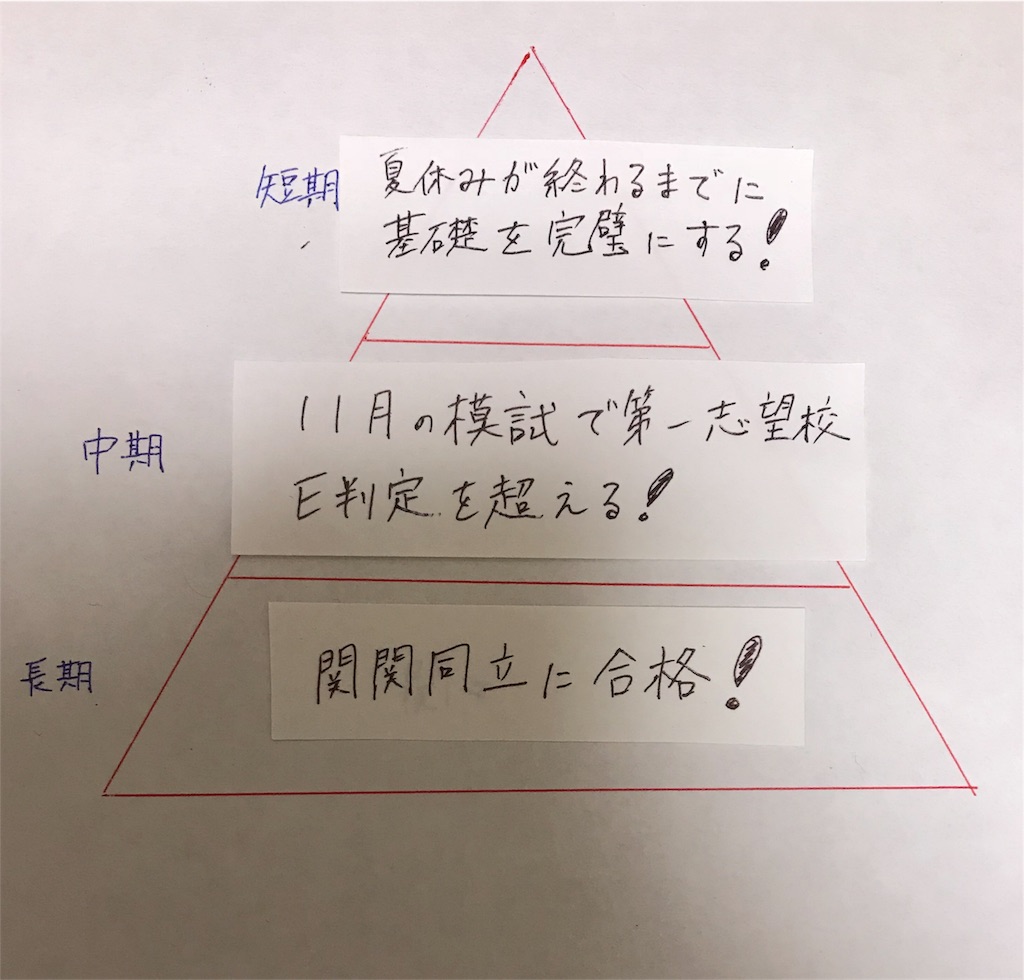 短期
夏休みが終わるまでに
基礎を完璧にする!
中期
11月の模試で第一志望校
E判定を超える!
長期
関関同立に合格!